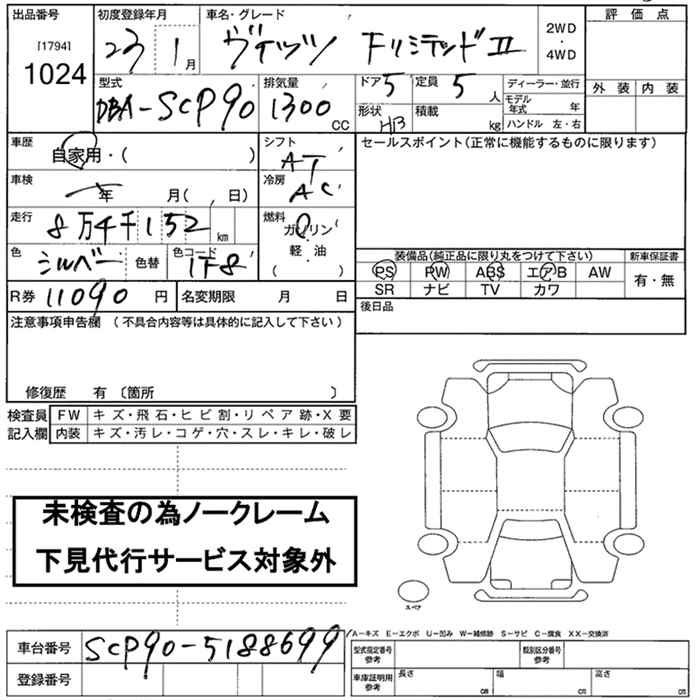 出品番号 初度登録年月 車名・グレード 評価点
[1794] 23 1月 ヴィッツ FリミテッドⅡ 2WD・4WD
1024
型式 排気量 ドア 5 定員 5人 ディーラー・並行 外装 内装
DBA-SCP90 1300 CC 形状 HB 積載 kg モデル年式 年
ハンドル 左・右
車歴 自家用・( ) シフト AT セールスポイント(正常に機能するものに限ります)
車検 年 月( 、 日) 冷房 AC
走行 8万4千152km 燃料 ガソリン
軽・油
( )
色 シルバー 色替 色コード 1F8 装備品(純正品に限り丸をつけて下さい) 新車保証書
PS PW ABS エアB AW 有・無
SR ナビ TV カワ
R券 11090円 名変期限 月 日 後日品
注意事項申告欄 (不具合内容等は具体的に記入して下さい)
修復歴 有 〔箇所 〕
検査員 FW キズ・飛石・ヒビ割・リペア跡・X要
記入欄 内装 キズ・汚レ・コゲ・穴・スレ・キレ・破レ
未検査の為ノークレーム
下見代行サービス対象外
スペア
A-キズ E-エクボ U-凹み W-補修跡 S-サビ C-腐食 XX-交換済
車台番号 SCP90-5188699 型式指定番号 参考 類別区分番号 参考
登録番号 車庫証明用 参考 長さ cm 幅 cm 高さ cm